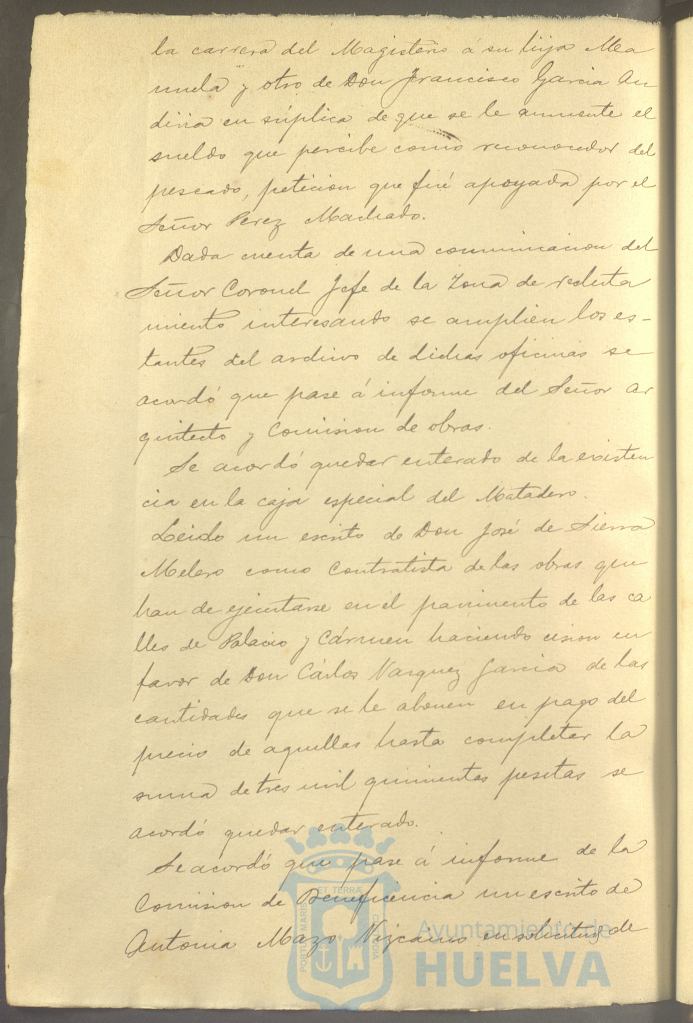 la carrera del Magisterio á su hija Ma
nuela y otro de Don Francisco Garcia An
diria en súplica de que se le aumente el
sueldo que percibe como reconocedor del
pescado, peticion que fué apoyada por el
Señor Perez Machado.
Dada cuenta de una comunicacion del
Señor Coronel Jefe de la Zona de recluta
miento interesando se amplien los es-
tantes del archivo de dichas oficinas se
acordó que pase á informe del Señor ar
quitecto y Comision de obras.
Se acordó quedar enterado de la existen
cia en la caja especial del Matadero.
Leido un escrito de Don José de Sierra
Melero como Contratista de las obras que
han de ejecutarse en el pavimento de las ca
lles de Palacio y Cármen haciendo cesion en
favor de Don Cárlos Vazquez Garcia de las
cantidades que se le abonen en pago del
precio de aquellas hasta completar la
suma de tres mil quinientas pesetas se
acordó quedar enterado.
Se acordó que pase á informe de la
Comision de Beneficencia un escrito de
Antonia Mazo Vizcaino en solicitud de
PORTUS MARIS ET TERRÆ CUSTODIA
Ayuntamiento de
HUELVA